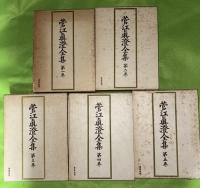 菅江真澄全集
第一巻
菅江真澄全集
第二巻
菅江真澄全集
第三巻
菅江真澄全集
第四巻
菅江真澄全集
第五巻